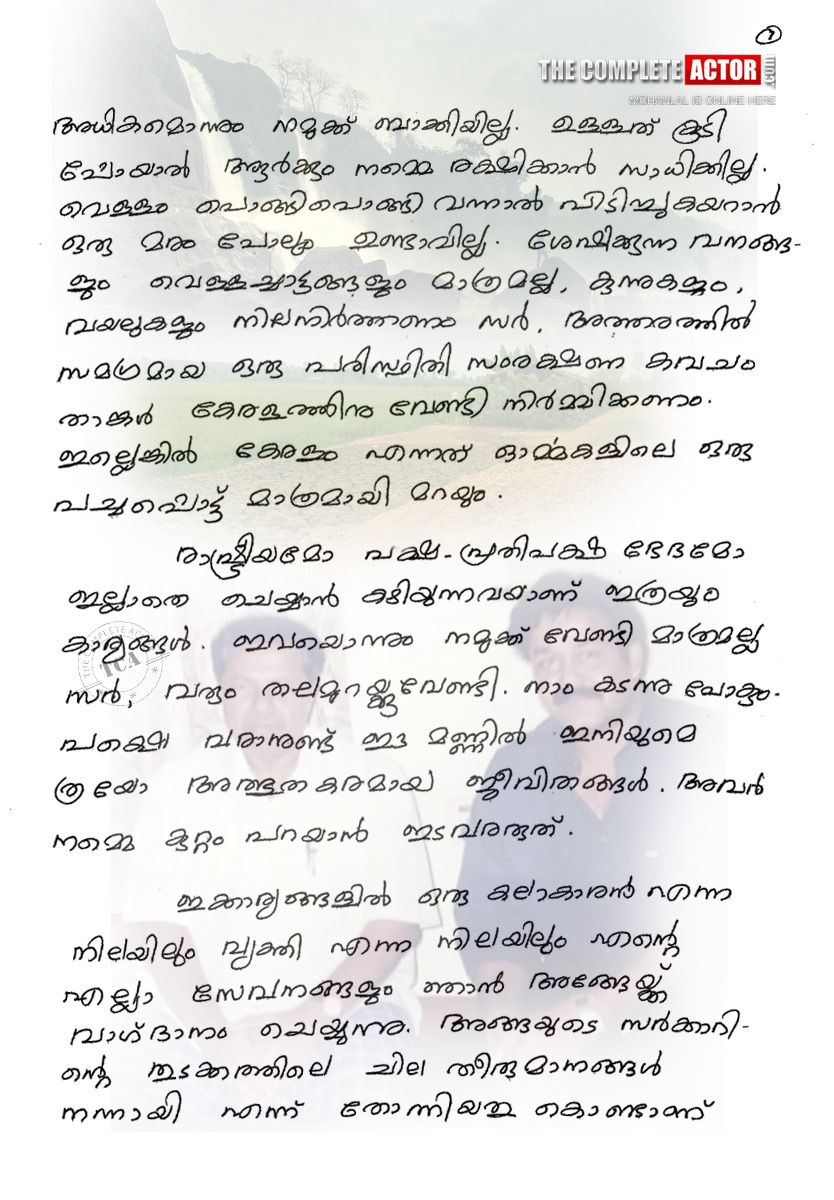 7
THE COMPLETE ACTOR.com
MOHANLAL IS ONLINE HERE
അധികമൊന്നും നമുക്ക് ബാക്കിയില്ല. ഉള്ളത് കൂടി
പോയാൽ ആർക്കും നമ്മെ രക്ഷിക്കാൻ സാധിക്കില്ല.
വെള്ളം പൊങ്ങിപൊങ്ങി വന്നാൽ പിടിച്ചുകയറാൻ
ഒരു മരം പോലും ഉണ്ടാവില്ല. ശേഷിക്കുന്ന വനങ്ങ-
ളും വെള്ളച്ചാട്ടങ്ങളും മാത്രമല്ല, കുന്നുകളും,
വയലുകളും നിലനിർത്തണം സർ, അത്തരത്തിൽ
സമഗ്രമായ ഒരു പരിസ്ഥിതി സംരക്ഷണ കവചം
താങ്കൾ കേരളത്തിനു വേണ്ടി നിർമ്മിക്കണം.
ഇല്ലെങ്കിൽ കേരളം എന്നത് ഓർമ്മകളിലെ ഒരു
പച്ചപ്പൊട്ട് മാത്രമായി മറയും.
രാഷ്ട്രീയമോ പക്ഷ-പ്രതിപക്ഷ ഭേദമോ
ഇല്ലാതെ ചെയ്യാൻ കഴിയുന്നവയാണ് ഇത്രയും
കാര്യങ്ങൾ. ഇവയൊന്നും നമുക്ക് വേണ്ടി മാത്രമല്ല
സർ, വരും തലമുറയ്ക്കുവേണ്ടി. നാം കടന്നു പോകും.
പക്ഷെ വരാനുണ്ട് ഈ മണ്ണിൽ ഇനിയുമെ
ത്രയോ അത്ഭുതകരമായ ജീവിതങ്ങൾ. അവർ
നമ്മെ കുറ്റം പറയാൻ ഇടവരരുത്.
ഇക്കാര്യങ്ങളിൽ ഒരു കലാകാരൻ എന്ന
നിലയിലും വ്യക്തി എന്ന നിലയിലും എന്റെ
എല്ലാ സേവനങ്ങളും ഞാൻ അങ്ങേയ്ക്ക്
വാഗ്ദാനം ചെയ്യുന്നു. അങ്ങയുടെ സർക്കാറി-
ന്റെ തുടക്കത്തിലെ ചില തീരുമാനങ്ങൾ
നന്നായി എന്ന് തോന്നിയതു കൊണ്ടാണ്
THE COMPLETE ACTOR
TCA